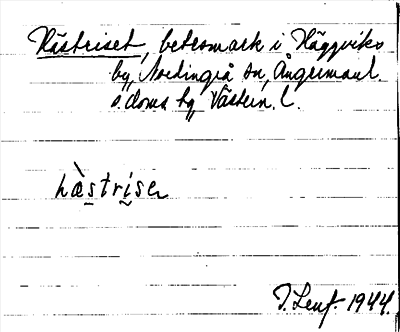 Hästriset, betesmark i Häggviks
by, Nordingrå sn, Ångermanl.
s. doms by Västern. l.
hæ̀strisɛ
1944.